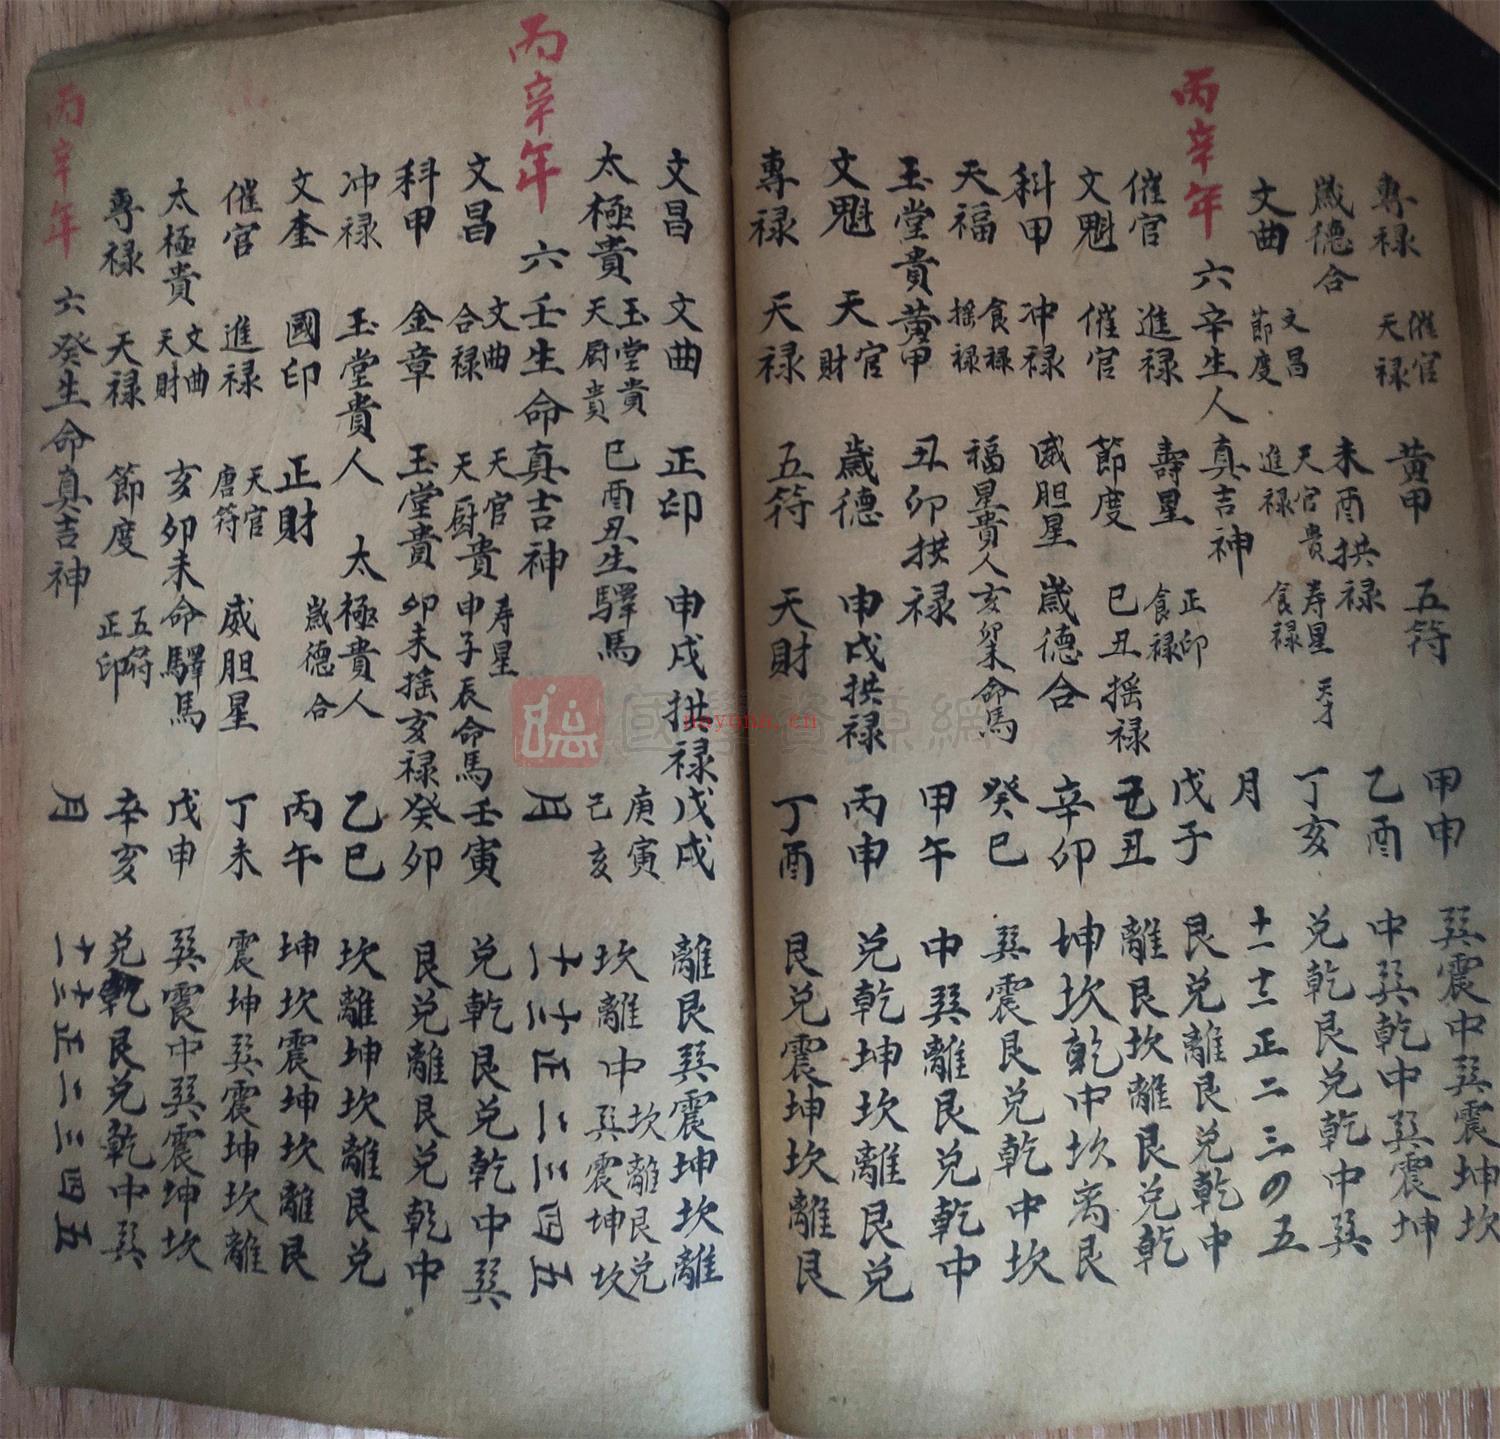 專禄 天禄催官 黄甲 五符 甲申 巽震中巽震坤坎
歲德合 未酉拱禄 乙酉 中巽乾中巽震坤
文曲 節度文昌 進禄天官貴 食禄寿星 天才 丁亥 兑乾艮兑乾中巽
丙辛年 六辛生人真吉神 月 十一十二正二三四五
催官 進禄 壽星 食禄正印 戊子 艮兑離艮兑乾中
文魁 催官 節度 巳丑摇禄 丑 離艮坎離艮兑乾
科甲 冲禄 威胆星 歲德合 辛卯 坤坎乾中坎离艮
天福 摇禄食禄 福星貴人亥卯未命馬 癸巳 巽震艮兑乾中坎
玉堂貴 黄甲 丑卯拱禄 甲午 中巽離艮兑乾中
文魁 天財官 歲德 申戌拱禄 丙申 兑乾坤坎離艮兑
專禄 天禄 五符 天財 丁酉 艮兑震坤坎離艮
文昌 文曲 正印 申戌拱禄 戊戌 離艮巽震坤坎離
太極貴 天厨貴玉堂貴 巳酉丑生驛馬 己亥庚寅 坎離中巽震坤坎坎離艮兑
丙辛年 六壬生命真吉神 月 十一十二正二三四五
文昌 合禄文曲 天厨貴天官 申子辰命馬寿星 壬寅 兑乾艮兑乾中巽
科甲 金章 玉堂貴 卯未摇亥禄 癸卯 艮兑離艮兑乾中
冲禄 玉堂貴人 太極貴人 乙巳 坎離坤坎離艮兑
文奎 國印 正財 歲德合 丙午 坤坎震坤坎離艮
催官 進禄 唐符天官 威胆星 丁未 震坤巽震坤坎離
太極貴 天財文曲 亥卯未命驛馬 戊申 巽震中巽震坤坎
專禄 天禄 節度 正印五符 辛亥 兑乾艮兑乾中巽
丙辛年 六癸生命真吉神 月 十一十二正二三四五
國學資源網
nayona.cn